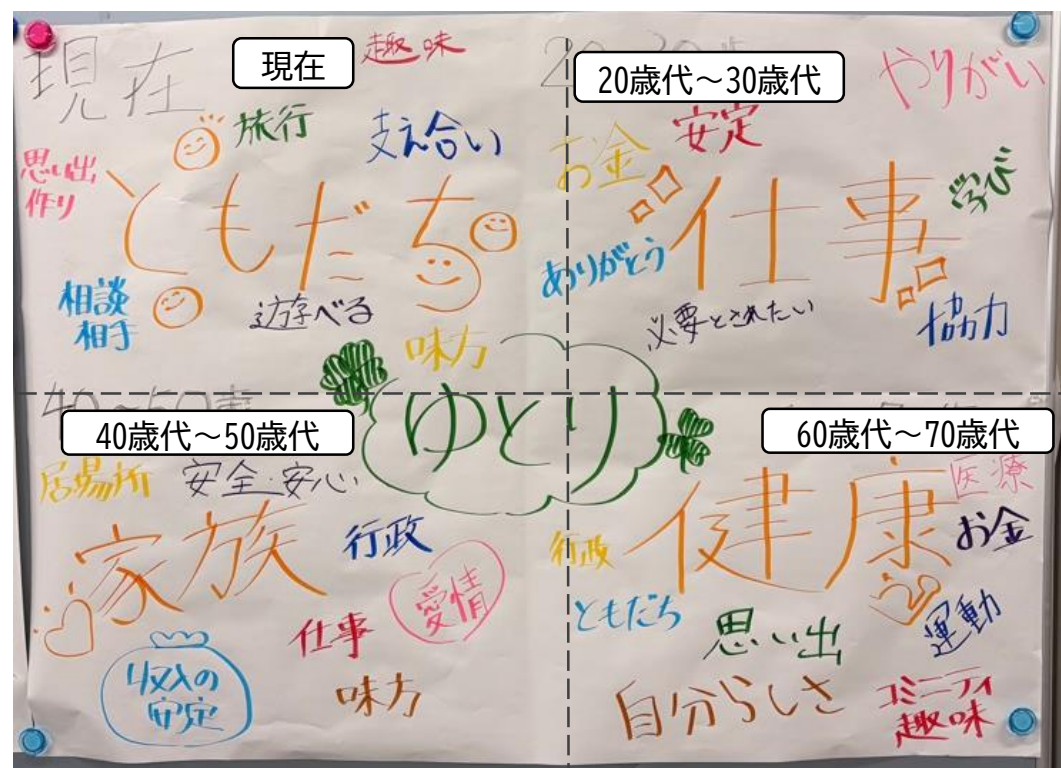 現在
現在
趣味
旅行
支え合い
思い出
作り
ともだち
相談
相手
遊べる
味方
20歳代~30歳代
やりがい
お金
安定
仕事
学び
ありがとう
必要とされたい
協力
ゆとり
40歳代~50歳代
居場所
安全・安心
家族
行政
愛情
仕事
収入の
安定
味方
60歳代~70歳代
医療
健康
お金
行政
ともだち
思い出
運動
自分らしさ
コミニティ
趣味